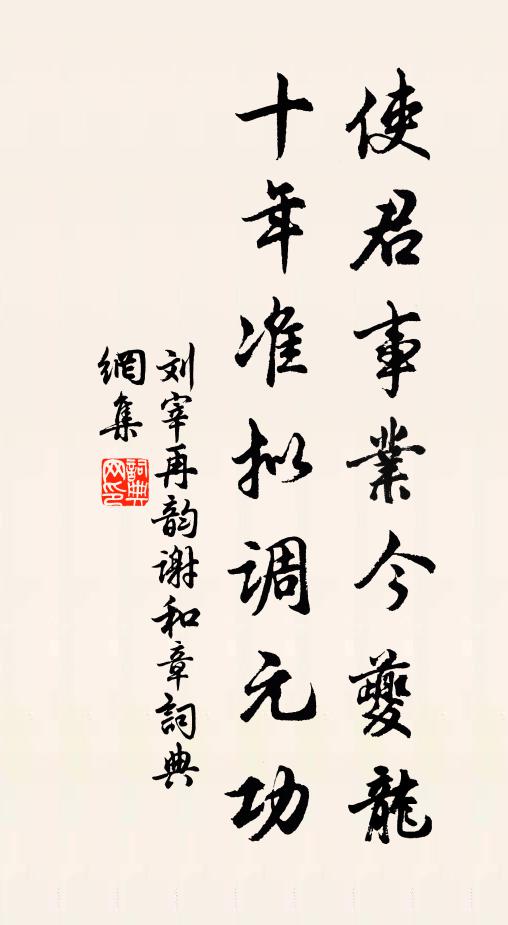 使君事業今夔龍
十年准拟調元功
刘宰再韵谢和章詞典
網集
詞典网印